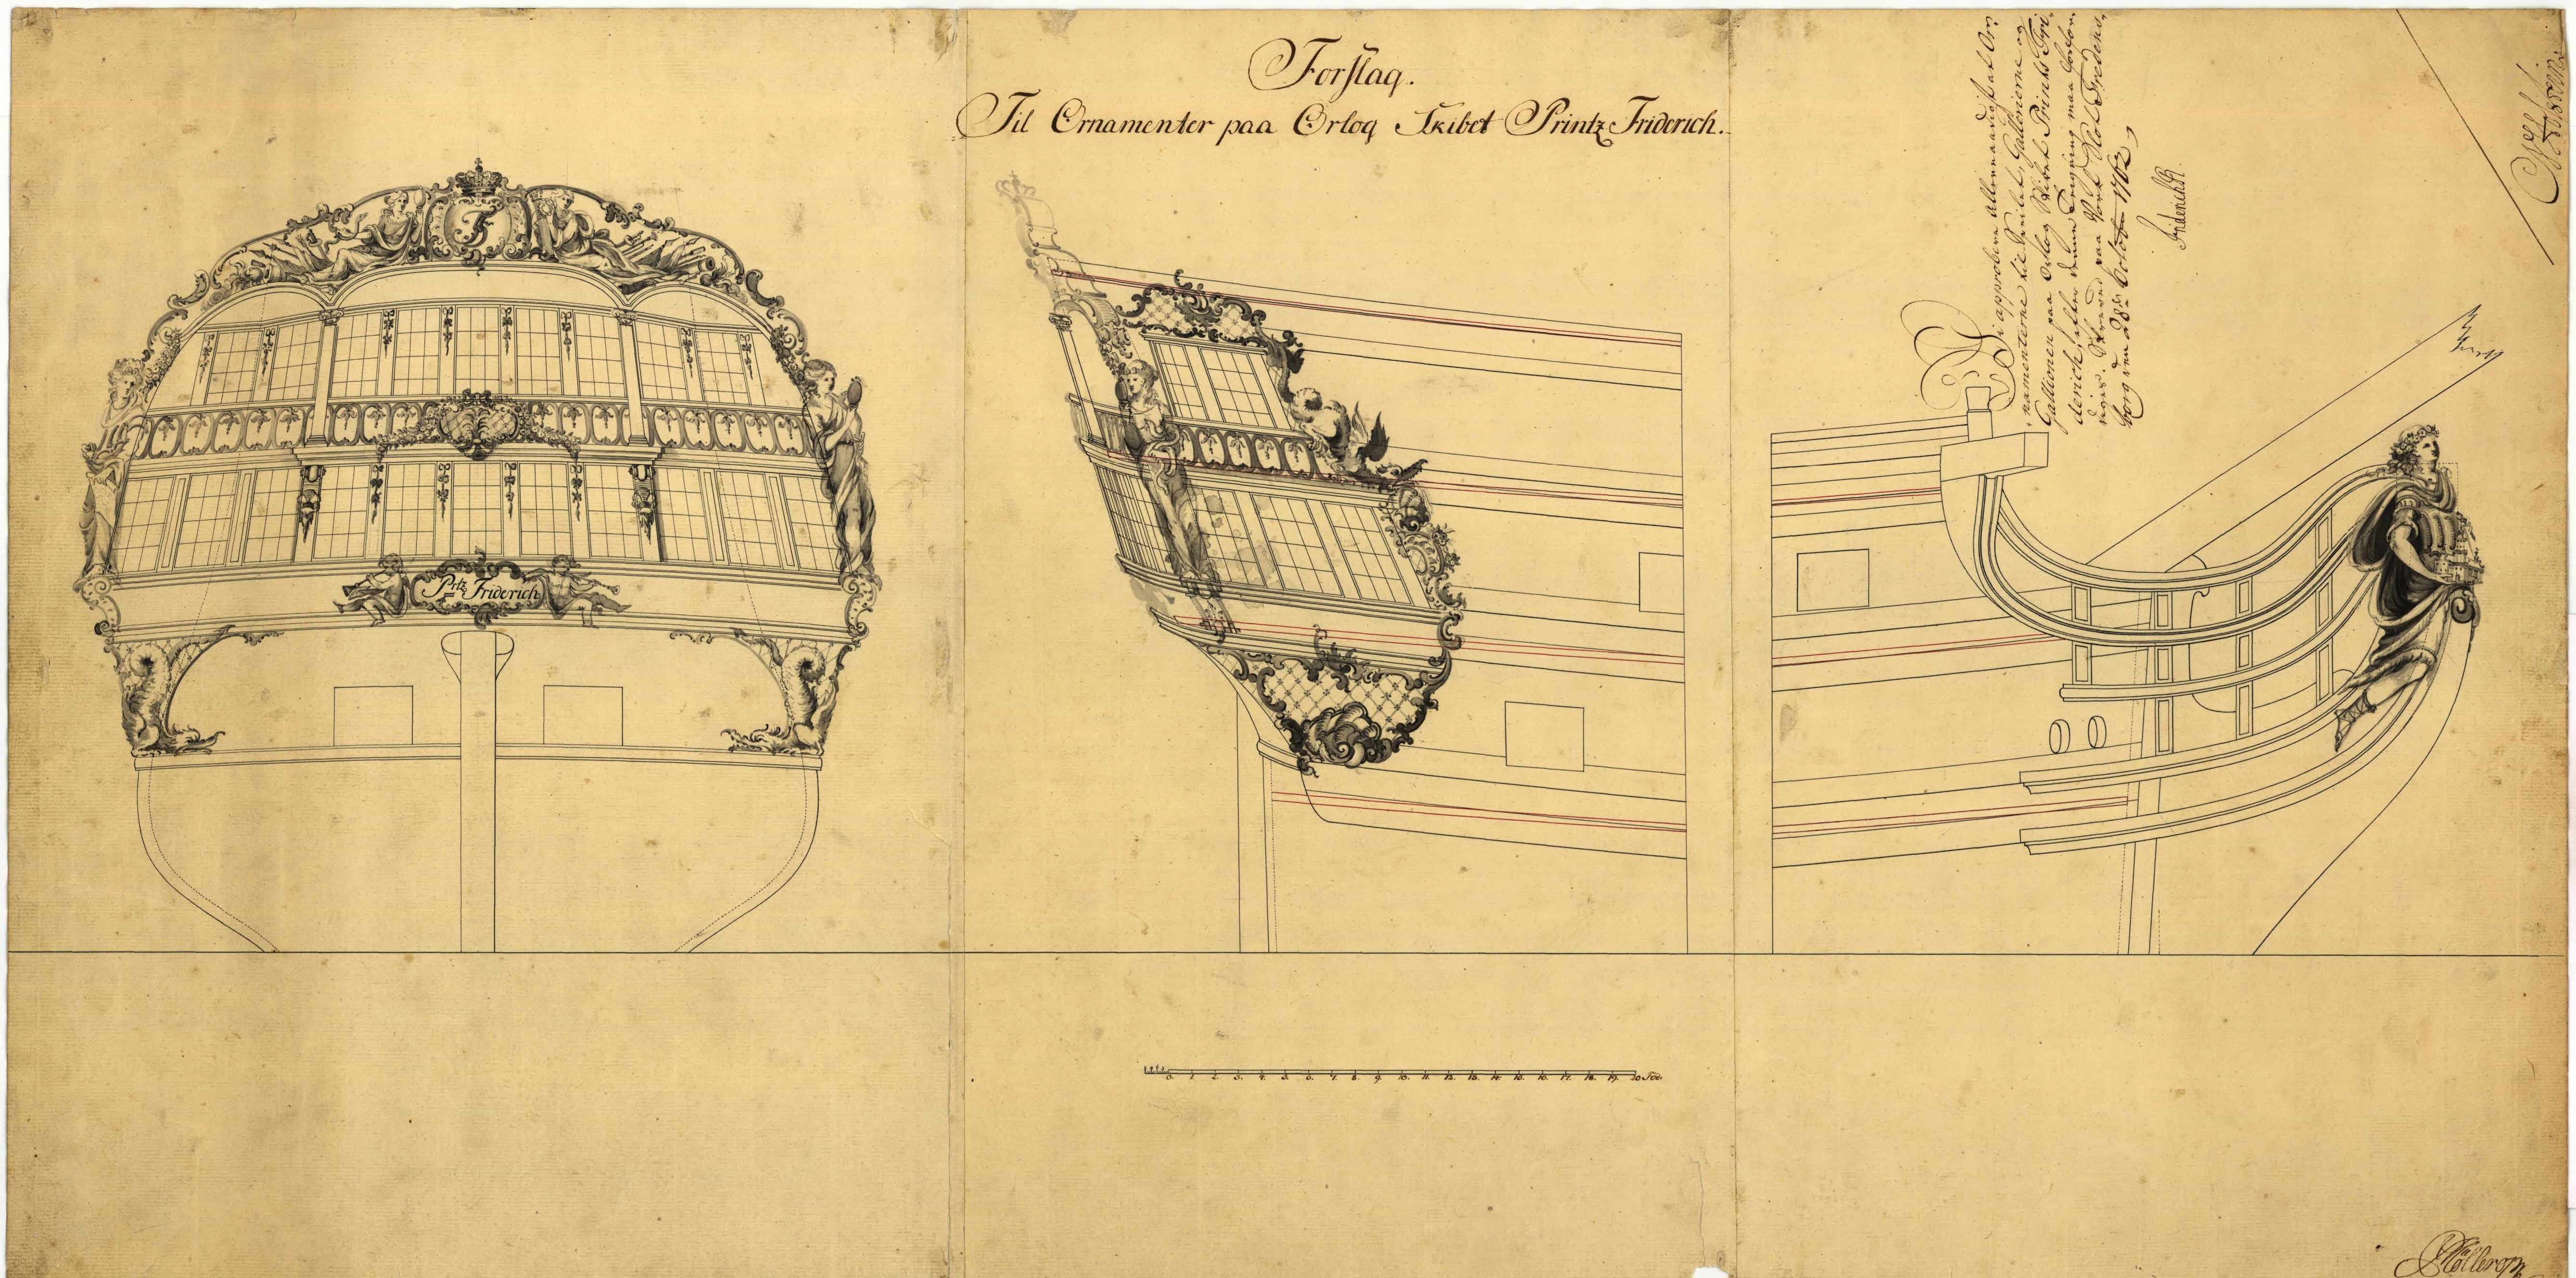 Forslag.
Til Ornamenter paa Orlog Skibet Printz Friderich.
F
Prtz Friderich
Vi approbere allernaadigst at Or,
namenterne til Speilet, Gallerierne og
Gallionen paa Orlog Skibet Prints Fri,
derich, efter denne Tegning maa forfær,
diges. Skrevet paa Vort Slot Fredens,
borg den 28de Octobr 1762,
FriderichR.
0. 1. 2. 3. 4. 5. 6. 7. 8. 9. 10. 11. 12. 13. 14. 15. 16. 17. 18. 19. 20 Fod.
Møllerop